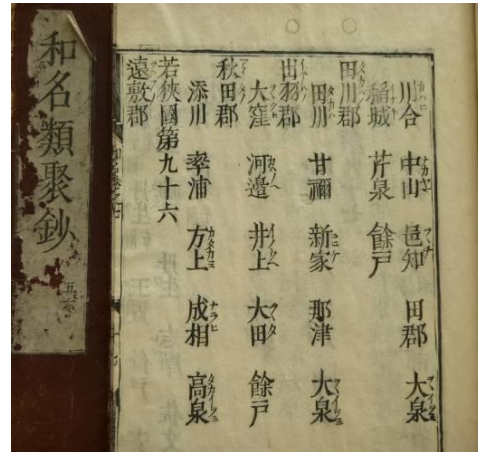 和名類聚鈔
川合 中山 邑知 田郡 大泉
稲城 芹泉 餘戸
田川郡
田川 甘禰 新家 那津 大泉
出羽郡
大窪 河邉 井上 大田 餘戸
秋田郡
添川 率浦 方上 成相 高泉
若狹國第九十六
遠敷郡